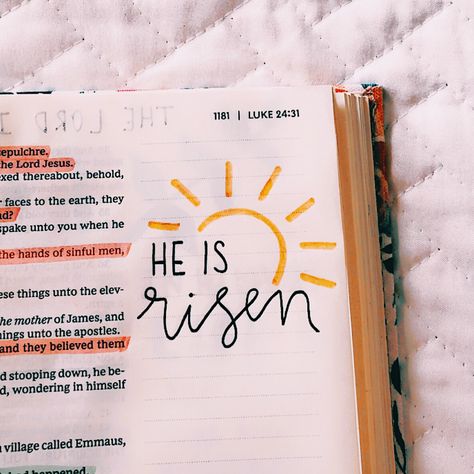 THE LORD I
1181 | LUKE 24:31
sepulchre.
the Lord Jesus.
exed thereabout, behold,
r faces to the earth, they
nd?
spake unto you when he
the hands of sinful men,
ese things unto the elev-
the mother of James, and
hings unto the apostles.
and they believed them
d stooping down, he be-
d, wondering in himself
a village called Emmaus,
had happened.
HE IS
risen